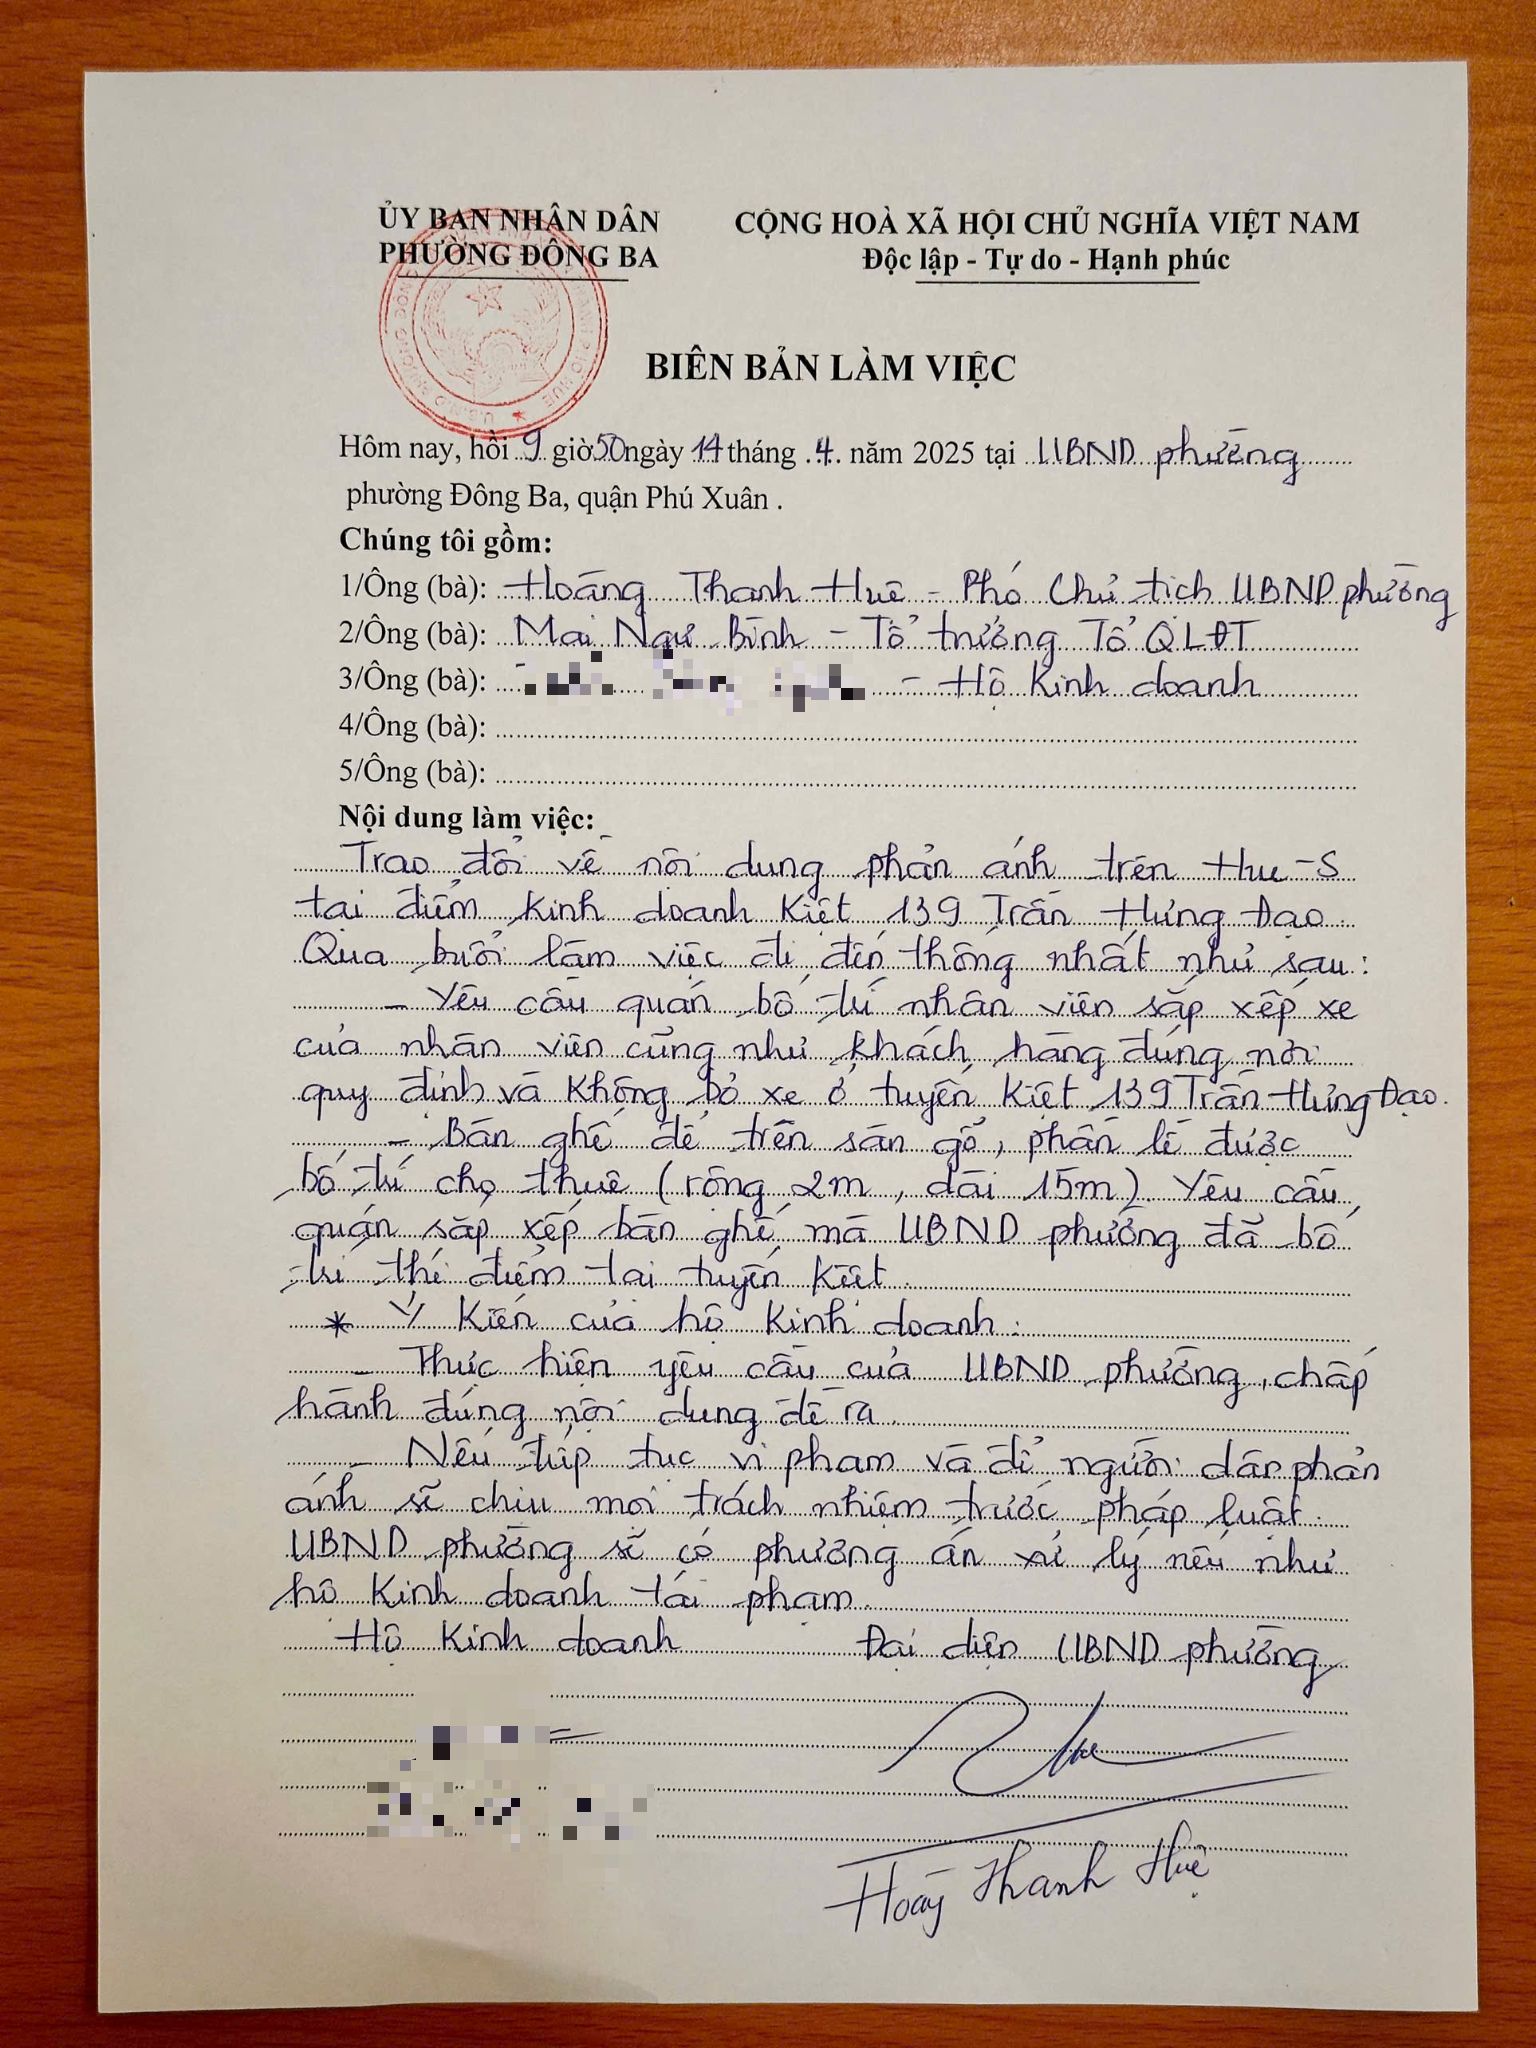 ỦY BAN NHÂN DÂN
PHƯỜNG ĐÔNG BA
CỘNG HOÀ XÃ HỘI CHỦ NGHĨA VIỆT NAM
Độc lập - Tự do - Hạnh phúc
BIÊN BẢN LÀM VIỆC
Hôm nay, hồi 9 giờ 50 ngày 14 tháng 4 năm 2025 tại UBND phường
phường Đông Ba, quận Phú Xuân .
Chúng tôi gồm:
1/Ông (bà): Hoàng Thanh Huê - Phó Chủ tịch UBND phường
2/Ông (bà): Mai Ngư Bình - Tổ trưởng Tổ QLĐT
3/Ông (bà): - Hộ Kinh doanh
4/Ông (bà):
5/Ông (bà):
Nội dung làm việc:
Trao đổi về nội dung phản ánh trên Hue-S
tại điểm kinh doanh Kiệt 139 Trần Hưng Đạo.
Qua buổi làm việc đi đến thống nhất như sau:
- Yêu cầu quán bố trí nhân viên sắp xếp xe
của nhân viên cũng như khách hàng đúng nơi
quy định và không bỏ xe ở tuyến Kiệt 139 Trần Hưng Đạo.
- Bàn ghế để trên sàn gỗ, phần lề được
bố trí cho thuê (rộng 2m, dài 15m). Yêu cầu
quán sắp xếp bàn ghế mà UBND phường đã bố
trí thí điểm tại tuyến Kiệt.
* Ý kiến của hộ Kinh doanh:
- Thực hiện yêu cầu của UBND phường, chấp
hành đúng nội dung đề ra.
- Nếu tiếp tục vi phạm và để người dân phản
ánh sẽ chịu mọi trách nhiệm trước pháp luật.
UBND phường sẽ có phương án xử lý nếu như
hộ Kinh doanh tái phạm.
Hộ Kinh doanh Đại diện UBND phường
Hoàng Thanh Huệ